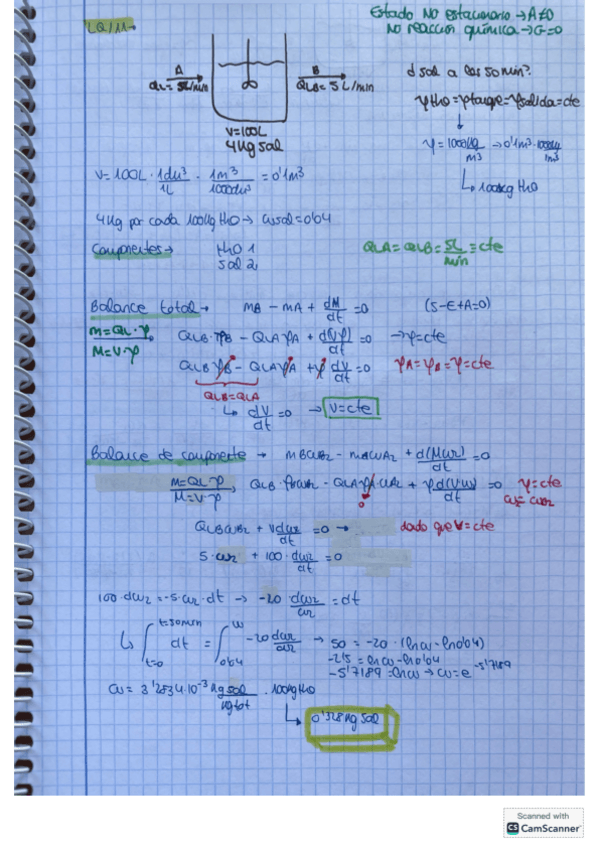 LQ/11→
Estado No estacionario → A≠0
No reacción química → G=0
A
QLA= 5L/min
B
QLB= 5L/min
V=100L
4kg sal
d sal a los 50 min?
ρH2O=ρtanque=ρsalida=cte
ρ= 1000kg/m³ → 0'1m³·1000kg/m³
↳ 100kg H2O
V= 100L · 1dm³/1L · 1m³/1000dm³ = 0'1m³
4kg por cada 100kg H2O → ωsal=0'04
Componentes → H2O 1
sal 2
QLA= QLB= 5L/min = cte
Balance total → mB - mA + dM/dt =0 (S-E+A=0)
m=QL·ρ
M=V·ρ
QLB·ρB - QLAρA + d(Vρ)/dt =0 → ρ=cte
QLBρB - QLAρA + ρ dV/dt =0 ρA=ρB=ρ=cte
QLB=QLA
↳ dV/dt =0 → V=cte
Balance de componente → mBωB2 - mAωA2 + d(Mω2)/dt =0
m=QL·ρ
M=V·ρ
QLB·ρBωB2 - QLA·ρA·ωA2 + ρd(Vω2)/dt =0 ρ=cte
0
ω2=ωB2
QLBωB2 + Vdω2/dt =0 → dado que V=cte
5·ω2 + 100·dω2/dt =0
100·dω2=-5·ω2·dt → -20·dω2/ω2 = dt
↳ ∫ t=0 t=50min dt = ∫ 0'04 ω -20dω2/ω2 → 50 = -20·(lnω - ln0'04)
-2'5 = lnω - ln0'04
-5'7189 = lnω → ω=e^-5'7189
ω= 3'2834·10⁻³ kg sal/kg tot · 100kg H2O
↳ 0'328 kg sal
Scanned with
CS CamScanner